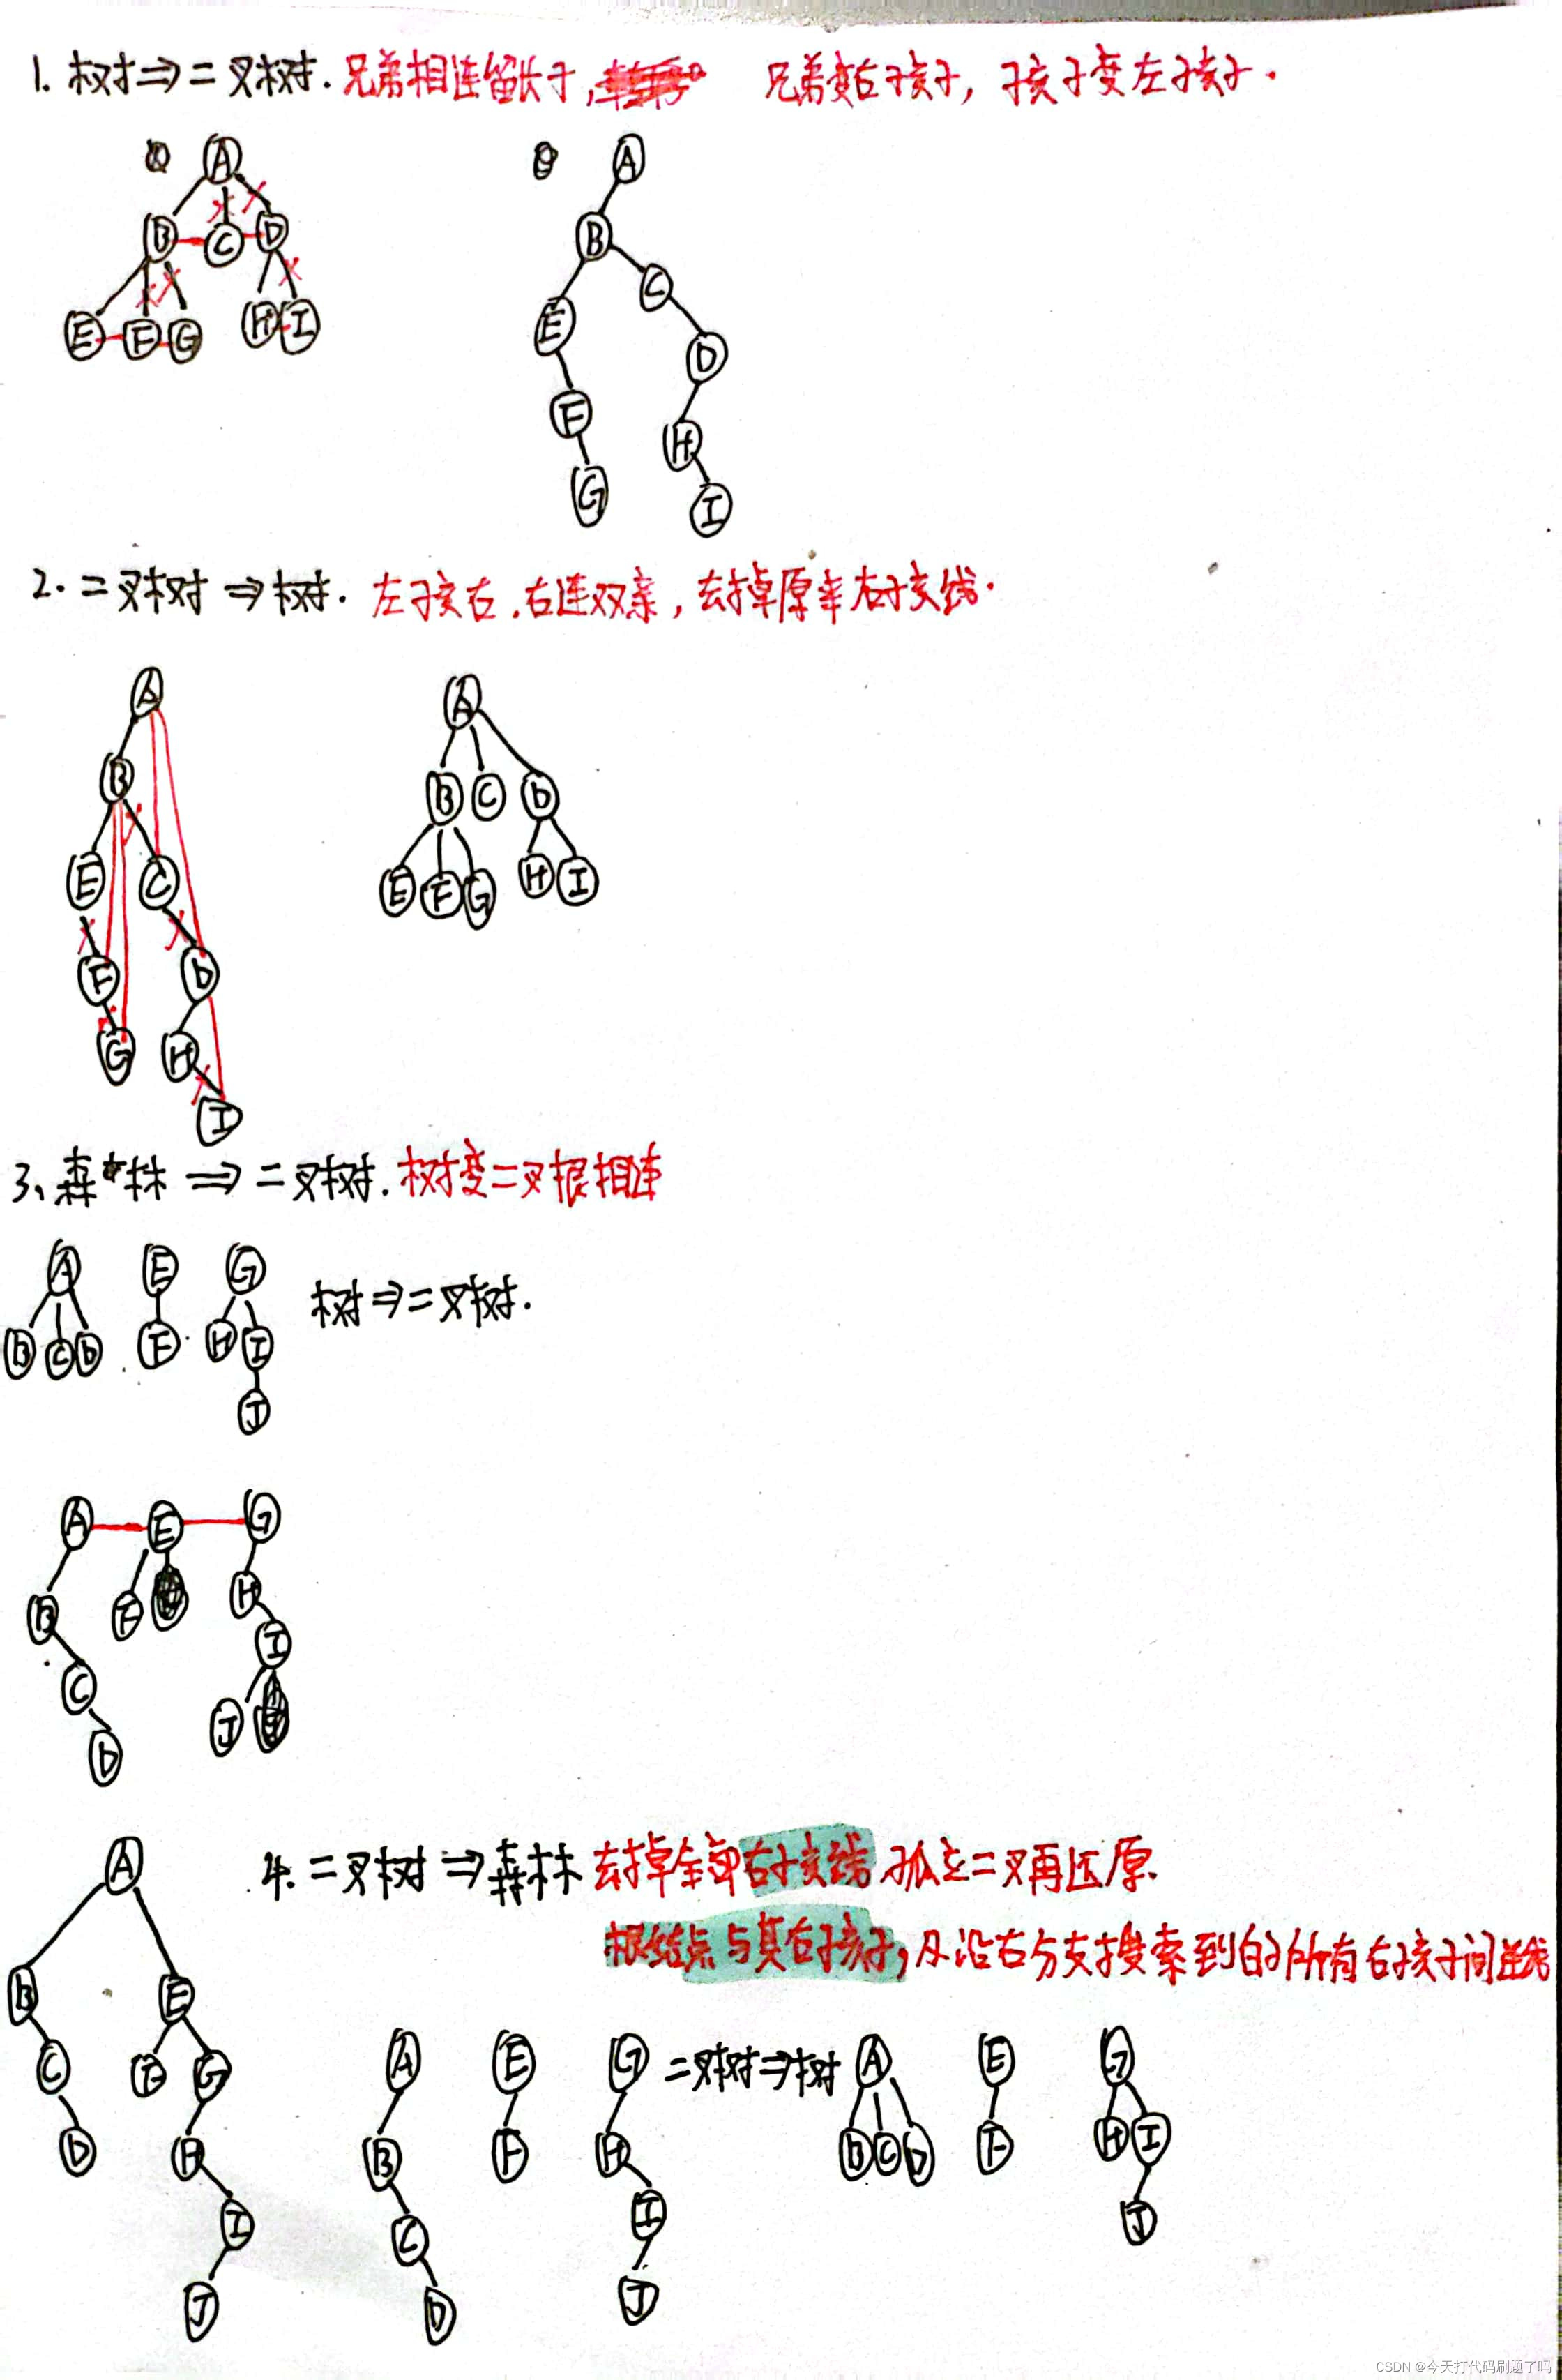 1. 树⇒二叉树. 兄弟相连留长子, 兄弟变右孩子, 孩子变左孩子.
A A
B C D B
E F G H I C
E
D
F
H
G I
2. 二叉树⇒树. 左孩右右连双亲, 去掉原来右孩线.
A A
B B C D
E C E F G H I
F D
G H
I
3、森林⇒二叉树. 树变二叉根相连
A E G 树⇒二叉树.
B C D F H I
J
A E G
B F H
C I
D J
A 4. 二叉树⇒森林 去掉全部右孩线 孤立二叉再还原.
根结点与其右孩子, 及沿右分支搜索到的所有右孩子间连线
B E
C F G A E G 二叉树⇒树 A E G
D H B F H B C D F H I
I C I J
J D J
CSDN @今天打代码刷题了吗